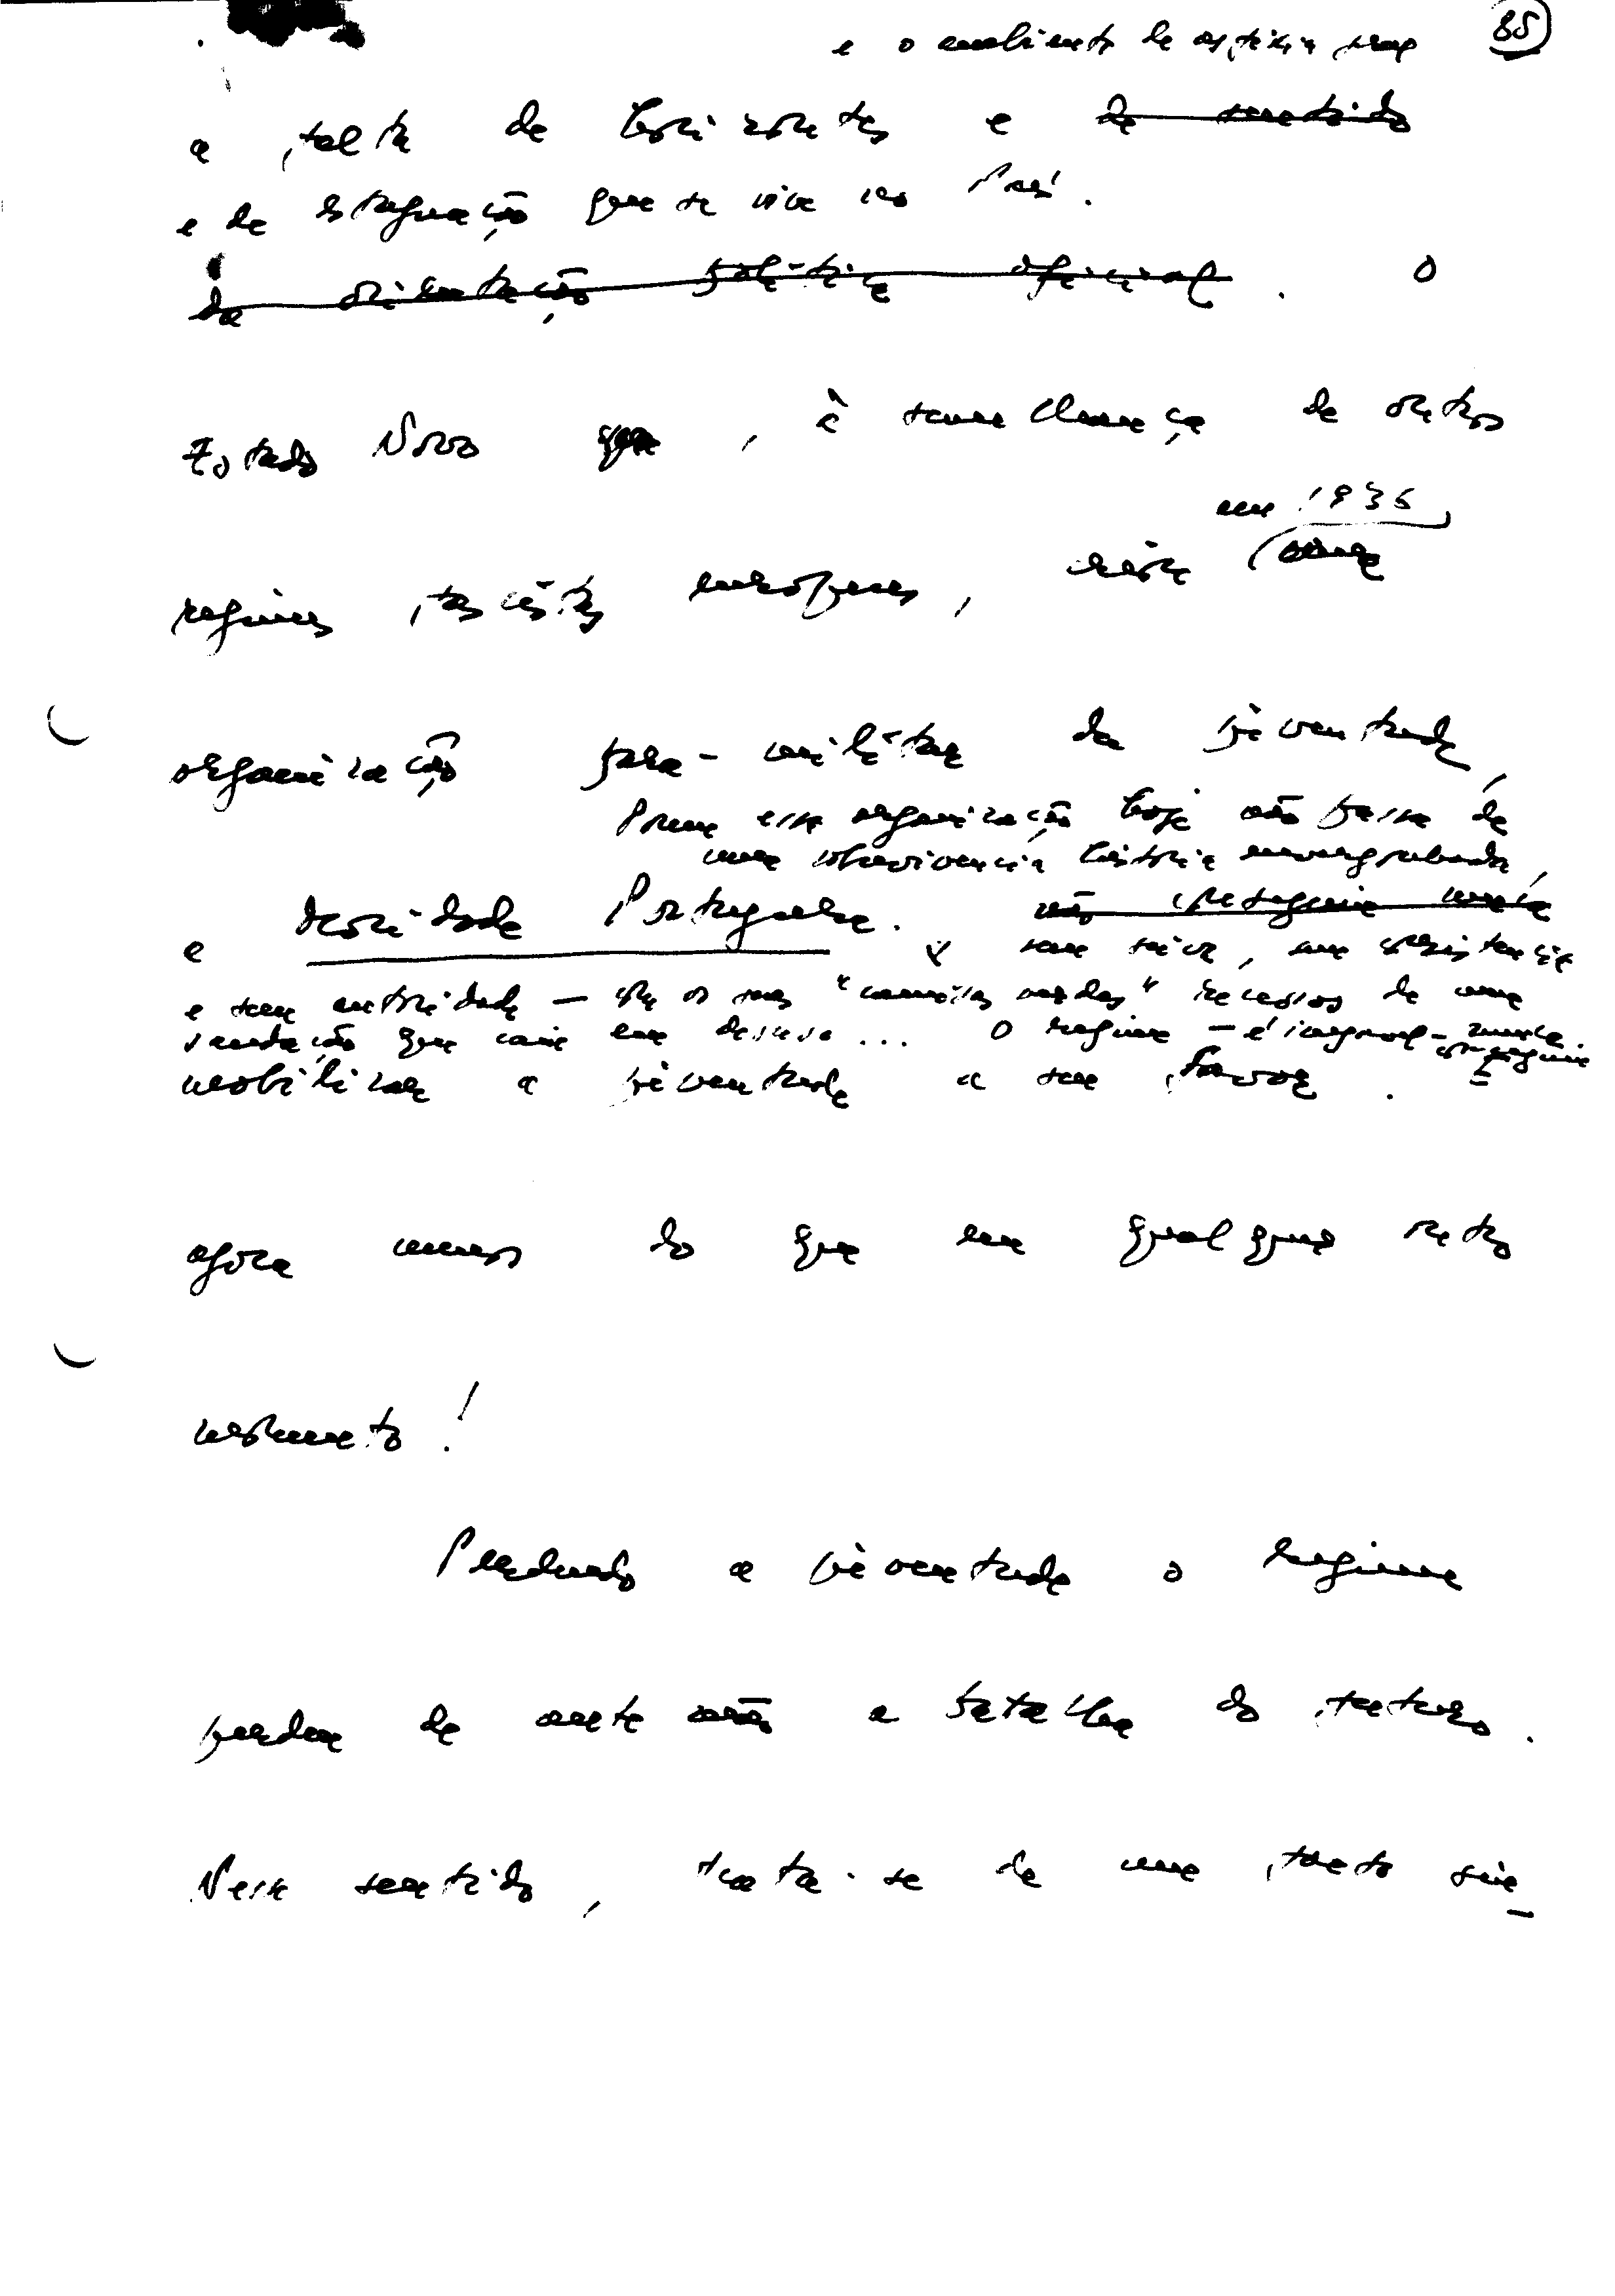 85
e o ambiente de asfixia
a falta de horizontes e de sentido
e de estagnação que se vive no País.
da orientação política oficial. O
Estado Novo que, à semelhança de outros
em 1936
regimes fascistas europeus, criou uma
organização para-militar da juventude,
Porem essa organização hoje não passa de
uma sobrevivencia história envergonhada,
a Mocidade Portuguesa. não conseguiu nunca
sem seiva, sem consistencia
e sem autoridade — os seus "camisas verdes" de uma
saudação que caiu em desuso... O regime — é inegavel - nunca
conseguiu
mobilizar a juventude a seu favor.
agora menos do que em qualquer outro
momento!
Perdendo a juventude o regime
perdeu de ante mão a batalha do futuro.
Nesse sentido, trata-se de um facto sin-